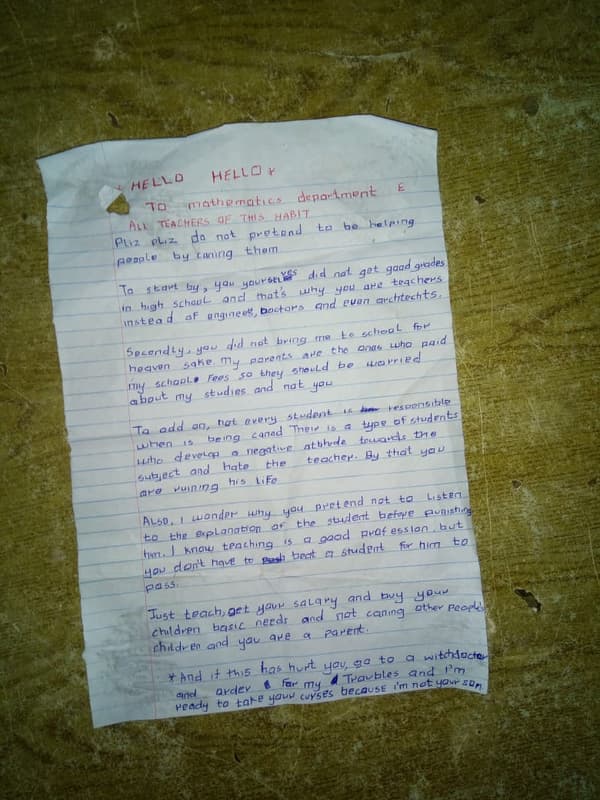 * HELLO HELLO *
TO mathematics department &
ALL TEACHERS OF THIS HABIT
Pliz pliz do not pretend to be helping
people by caning them
To start by, you yourselves did not get good grades
in high school and that's why you are teachers
instead of engineer, Doctors and even archtechts.
Secondly, you did not bring me to school for
heaven sake. my parents are the ones who paid
my school fees so they should be worried
about my studies and not you
To add on, not every student is responsible
when is being caned Their is a type of students
who develop a negative attitude towards the
subject and hate the teacher. By that you
are ruining his life
Also, I wonder why you pretend not to listen
to the explanation of the student before punishing
him. I know teaching is a good profession but
you don't have to beat a student for him to
pass.
Just teach, get your salary and buy your
children basic needs and not caning other people's
children and you are a parent.
* And if this has hurt you, go to a witchdoctor
and order for my Troubles and i'm
ready to take your curses because i'm not your son